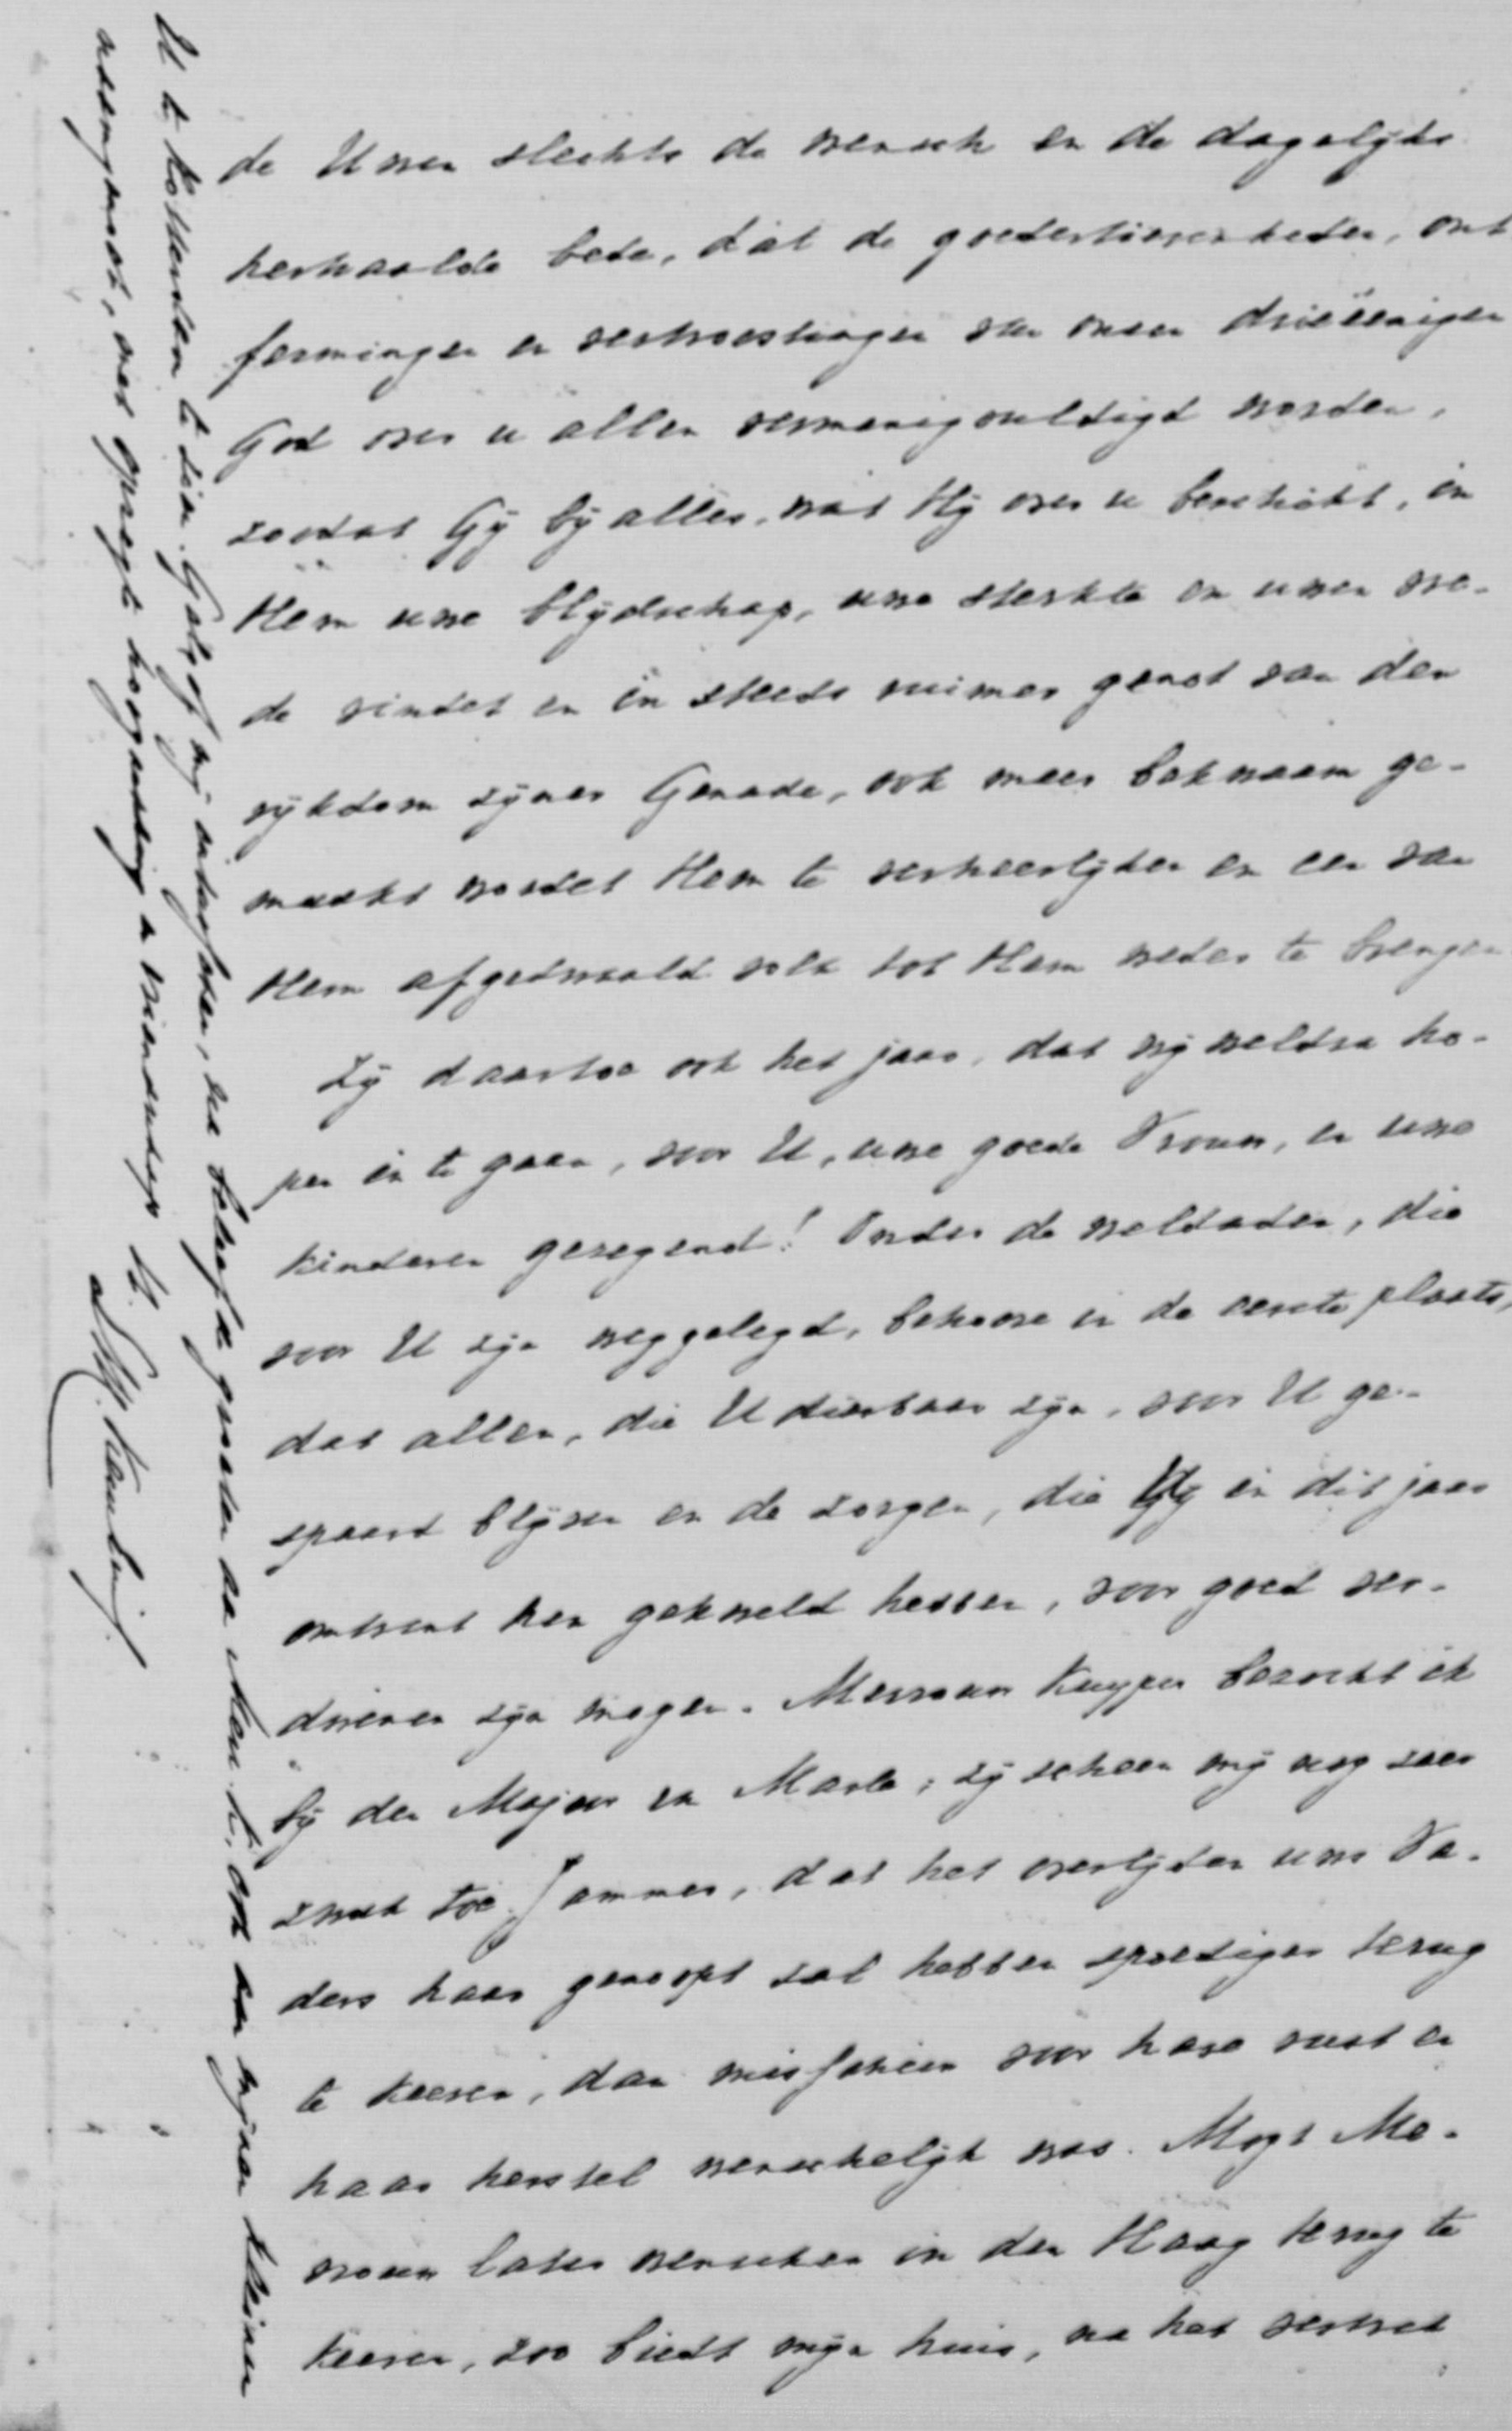 de Uwen slechts de wensch en de dagelijks
herhaalde bede, dat de goedertierenheden, ont
fermingen en vertroostingen van onzen drieëenigen
God over u allen vermenigvuldigd worden,
zoodat Gij bij alles, wat Hij over u beschikt, in
Hem uwe blijdschap, uwe sterkte en uwen vre-
de vindet en in steeds ruimer genot van den
rijkdom zijner Genade, ook meer bekwaam ge-
maakt wordet Hem te verheerlijken en een van
Hem afgedwaald volk tot Hem weder te brengen
Zij daartoe ook het jaar, dat wij weldra ho-
pen in te gaan, voor U, uwe goede Vrouw, en uwe
kinderen gezegend! Onder de weldaden, die
voor U zijn weggelegd, behoore in de eerste plaats,
dat allen, die U dierbaar zijn, voor U ge-
spaard blijven en de zorgen, die Gij in dit jaar
omtrent hen gekweld hebben, voor goed ver-
dwenen zijn mogen. Mevrouw Kuyper bezocht ik
bij den Majoor en Marle; zij scheen mij nog zeer
zwak toe. Jammer, dat het overlijden uws Va-
ders haar genoopt zal hebben spoediger terug
te keeren, dan misschien voor hare rust en
haar herstel wenschelijk was. Mogt Me-
vrouw later wenschen in den Haag terug te
keeren, zoo biedt mijn huis, na het vertrek
U te Rotterdam te zien. Gelief mij intusschen, na beleefde groeten aan Mevr. K., ook van mijnen kleinen
aangenaam, met opregte hoogachting en vriendschap